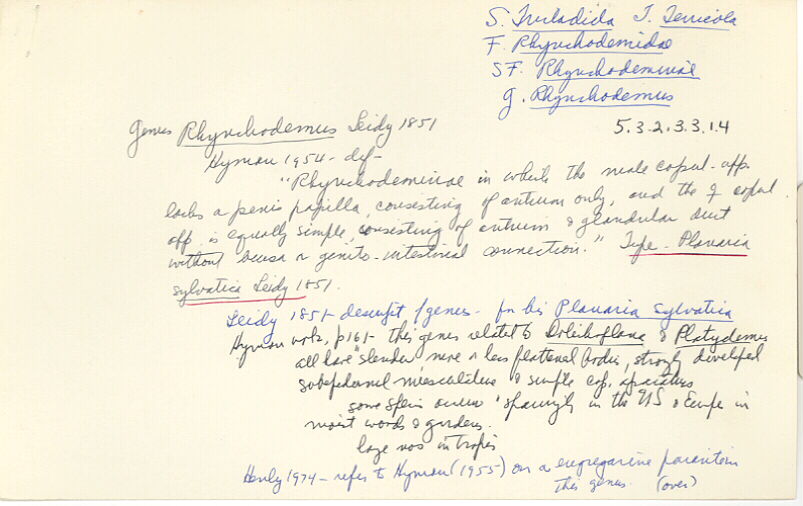 S. Tricladida I. Terricola
F. Rhynchodemidae
SF. Rhynchodeminae
g. Rhynchodemus
5.3.2.3.3.1.4
Genus Rhynchodemus Leidy 1851
Hyman 1954 - def -
"Rhynchodeminae in which the male copul. app.
lacks a penis papilla, consisting of antrum only, and the ♀ copul.
app. is equally simple, consisting of antrum & glandular duct
without bursa or genito-intestinal connection." Type - Planaria
sylvatica Leidy 1851.
Leidy 1851 - descript of genus - for his Planaria sylvatica
Hyman notes, p161 - this genus related to Dolichoplana & Platydemus
all have "slender more or less flattened bodies, strongly developed
subepidermal musculature & simple cop. apparatus
some species occur "sparingly in the US & Europe in
moist woods & gardens.
large nos in tropics
1974 - refers to Hyman (1955) on a eugregarine parasite in
this genus. (over)